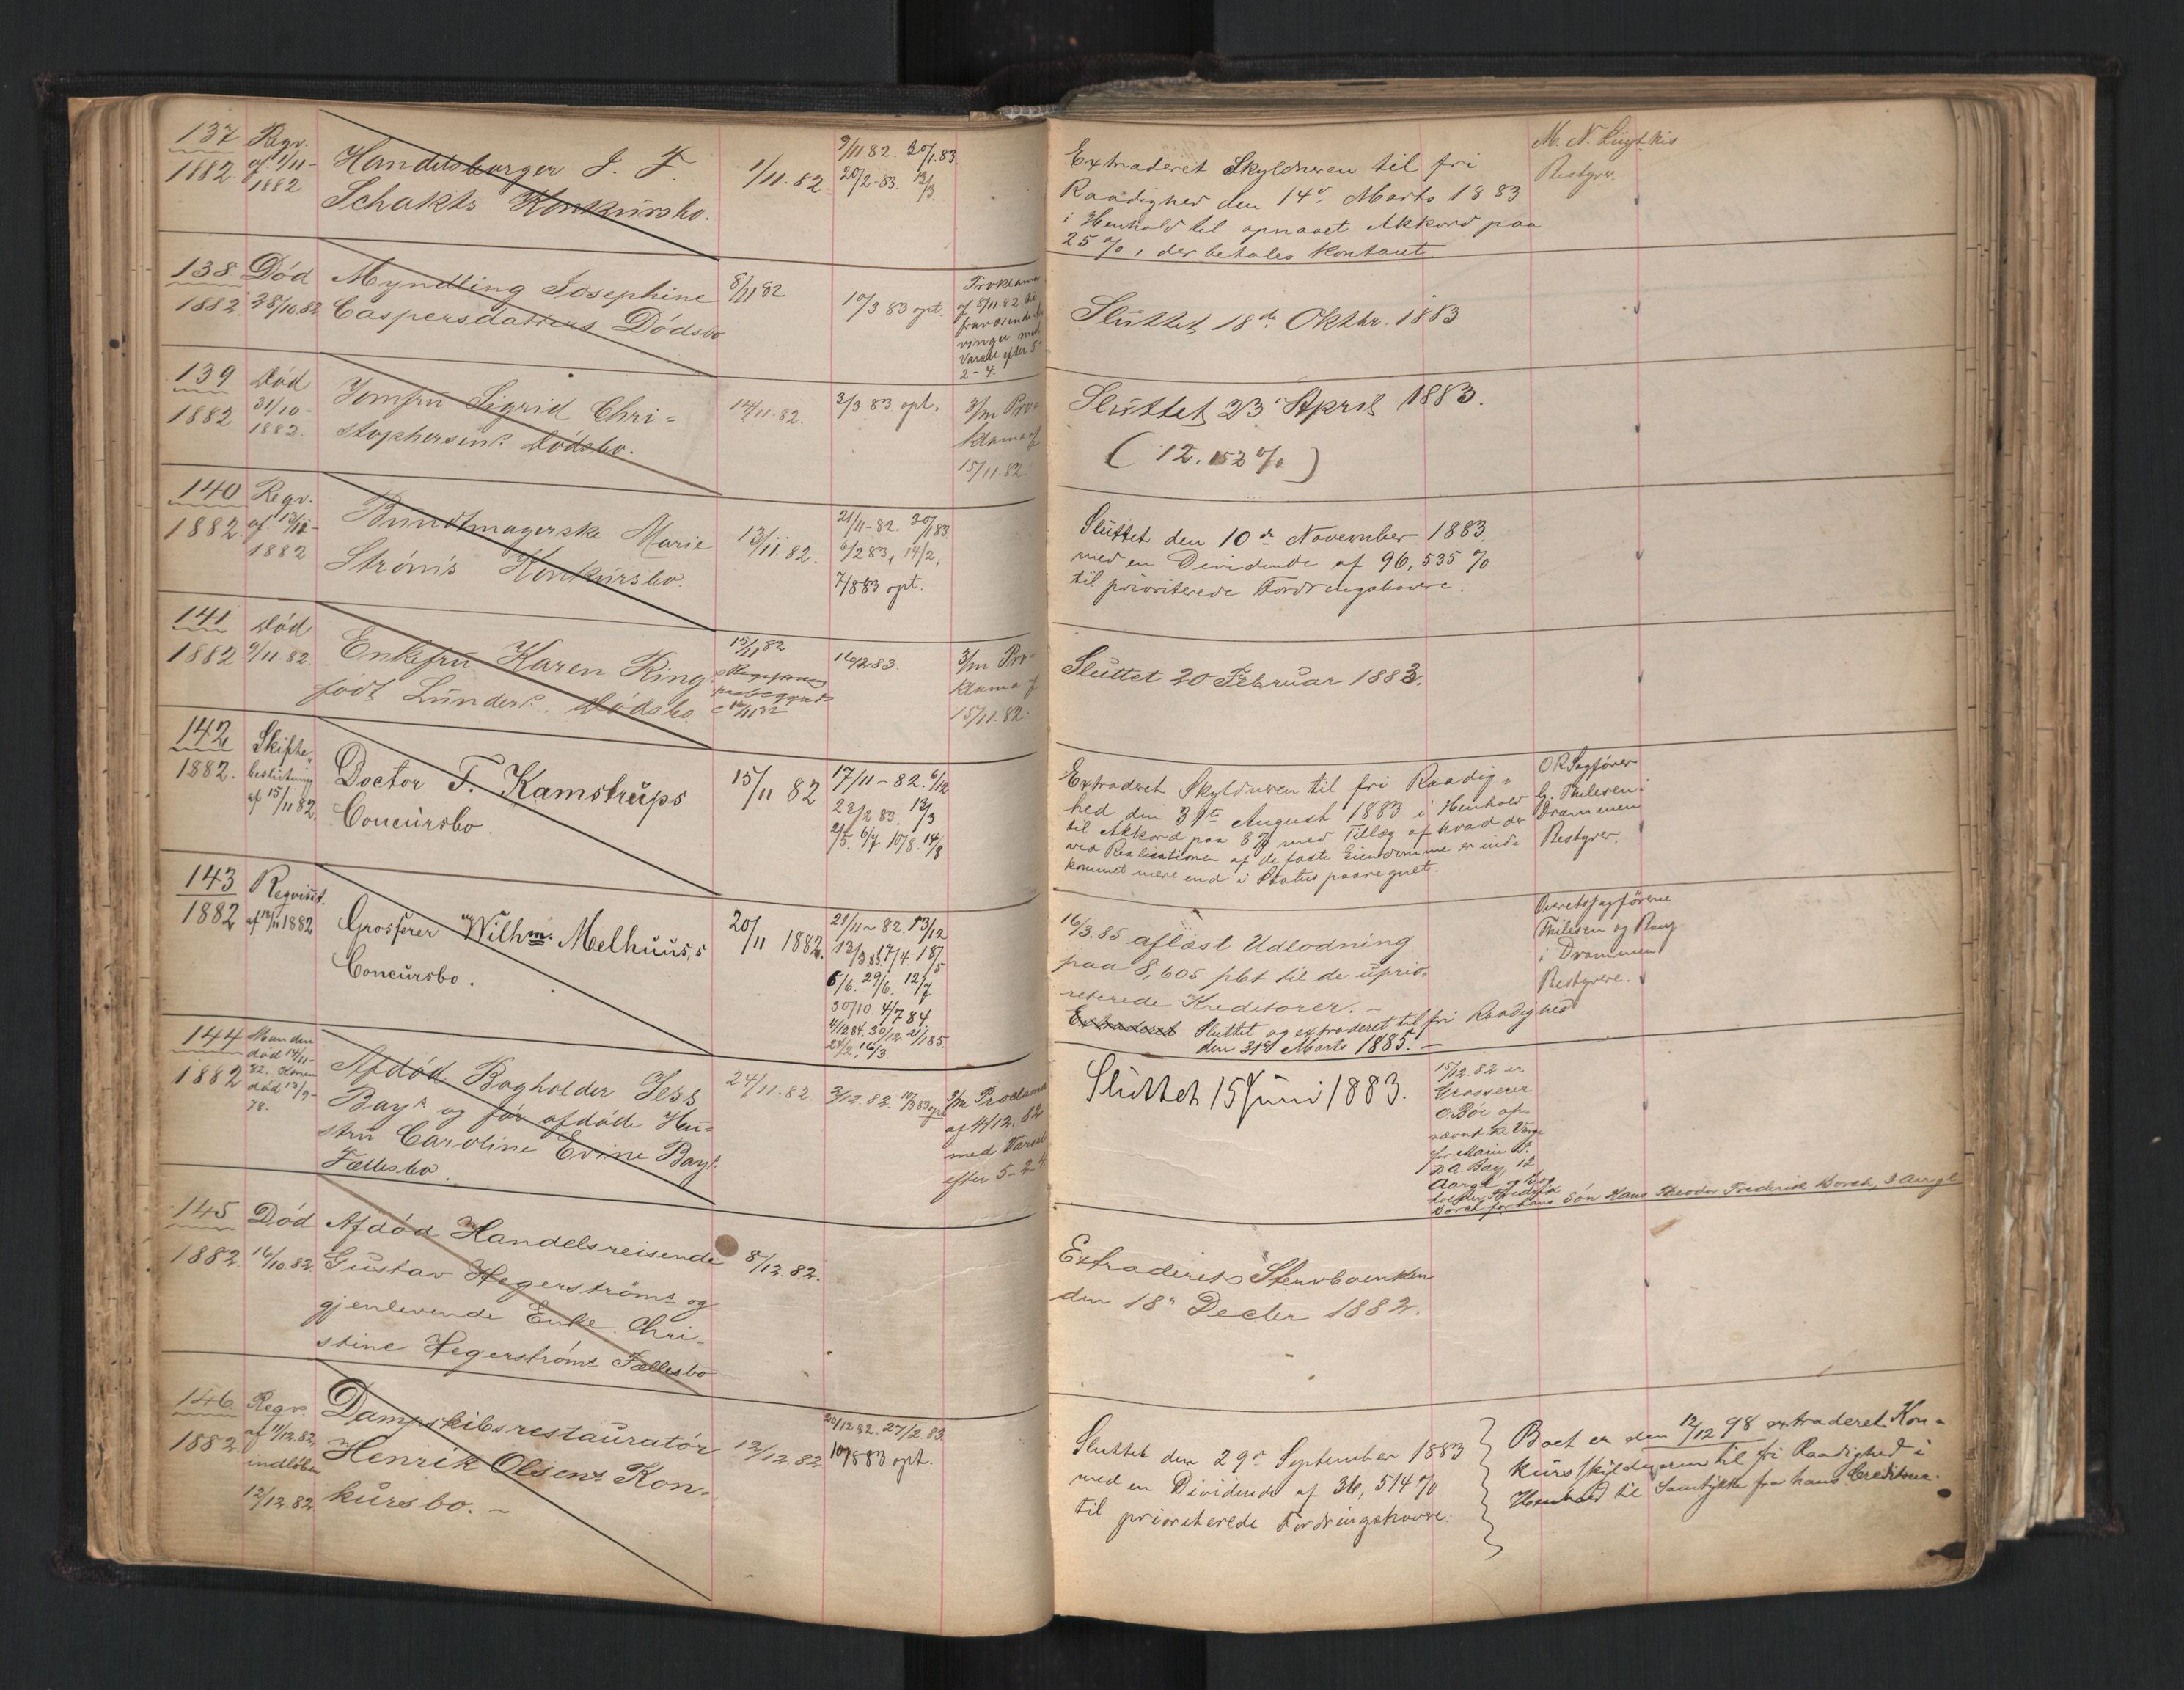 137 Reqv. Handelsborger J. F. 1/11. 82. 9/11 82. 20/1.83.
1882. af 1/11- Schakts Konkursbo. 20/2-83. 12/3.
1882
Extraderet Skyldneren til fri
Raadighed den 14de Marts 1883
i Henhold til opnaaet Akkord paa
25 %, der betales kontant.
Bestyrer.
138. Død Myndling Josephine 8/11 82
1882. 28/10.82 Caspersdatters Dødsbo 10/3 83 opt.
Proklama
af 8/11 82
med
Varsel efter 5-
2-4.
Sluttet 18de Oktbr. 1883
139 Død Jomfru Sigrid Chri=
1882 31/10- stophersens Dødsbo. 14/11.82. 3/3 83. opt.
1882.
3/m Pro-
klama af
15/11.82.
Sluttet 23' April 1883.
( 12.152 % )
140 Reqv. Bundtmagerske Marie 13/11.82. 21/11-82. 30/1 83.
1882. af 13/11- Strøm's Konkursbo. 6/2 83, 14/2,
1882 7/8 83 opt.
Sluttet den 10de November 1883.
med en Dividende af 96,535 %
til prioriterede Fordringshavere.
141 Død Enkefru Karen Ring 15/11 82
1882 9/11 82. født Lunders. Dødsbo. 16/2 83.
3/m Pro-
klama af
15/11.82.
Sluttet 20 Februar 1883.
142 Skifte Doctor F. Kamstrups 15/11 82 17/11-82. 6/12
1882. beslutning Concursbo. 28/2 83. 13/3
af 15/11 82. 2/5. 6/7 10/8. 14/8
Extraderet Skyldneren til fri Raadig=
hed den 31te August 1883 i Henhold
til Akkord paa 8 % med Tillæg af hvad der
ved Realisationen af de faste Eiendomme er ind=
kommet mere end i Status paaregnet.
O R Sagfører
G. Thilesen.
Drammen
Bestyrer.
143 Reqvisit. Grosserer Wilhm. Melhuus,s 20/11 1882. 21/11-82. 13/12
1882 af 18/11 1882 Concursbo. 13/3 83. 17/4. 18/5
6/6. 29/6. 12/7
30/10. 4/7 84
4/12 84. 30/12. 21/1 85.
24/2, 16/3.
16/3.85 aflæst Udlodning
paa 8,605 pCt til de uprio=
riterede Kreditorer. -
Extraderet Sluttet og extraderet til fri Raadighed
den 31te Marts 1885. -
Overretssagførerne
Thilesen og Roug
i Drammen
Bestyrere.
144 Manden Afdød Bogholder Jess 24/11.82. 3/12.82.
1882 død 14/11- Bays og før afdøde Hu=
82. Konen stru Caroline Evine Bays
død 13/9- Fællesbo.
78.
3/m Proclama
af 4/12.82
med Varsel
efter 5-2-4
Sluttet 15 Juni 1883.
15/12.82 er
Grosserer
O. Bøe op=
nævnt til Værge
for Marie S.
D A. Bay, 12
Aar gl. og Bog
holder Fredrik
Borch for hans Søn Hans Theodor Frederik Borch, 3 Aar gl
145 Død Afdød Handelsreisende 8/12.82.
1882. 16/10.82. Gustav Hegerstrøms og
gjenlevende Enke Chri-
stine Hegerstrøms Fællesbo
Extraderets Stervboenken
den 18de Decbr 1882.
146 Reqv. Dampskibsrestauratør 12/12.82 20/12 82. 27/2.83
1882. af 11/12.82, Henrik Olsens Kon- 10/8 83 opt.
indløben kursbo. -
12/12.82
Sluttet den 29de September 1883
med en Dividende af 36,514 %
til prioriterede Fordringshavere.
Boet er den 12/12 98 extraderet Kon=
kursskyldneren til fri Raadighed i
Henhold til Samtykke fra hans Creditorer.